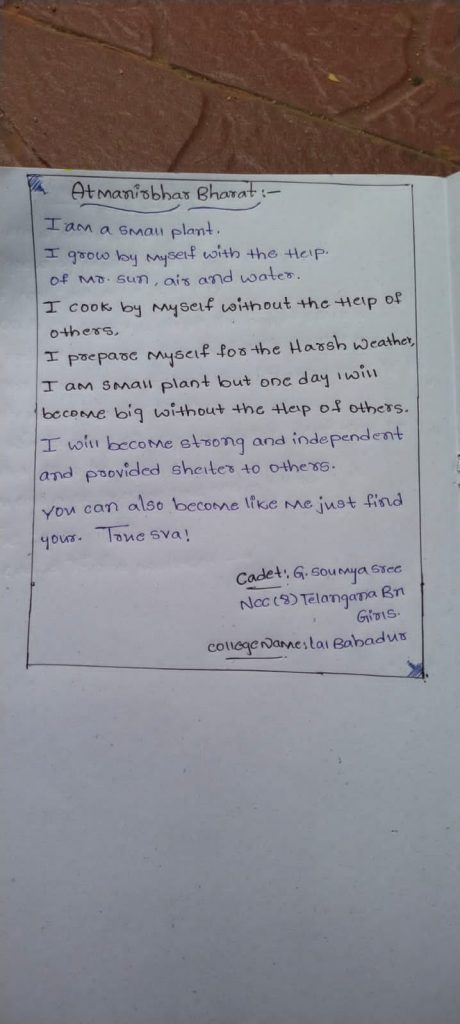 Atmanirbhar Bharat:-
I am a small plant.
I grow by Myself with the Help.
of Mr. sun, air and water.
I cook by Myself without the Help of
others,
I prepare Myself for the Harsh weather,
I am small plant but one day i will
become big without the Help of others.
I will become strong and independent
and provided shelter to others.
you can also become like me just find
your. True sva!
Cadet:, G. Soumya Sree
NCC (8) Telangana Bn
Girls.
college Name: Lal Babadur